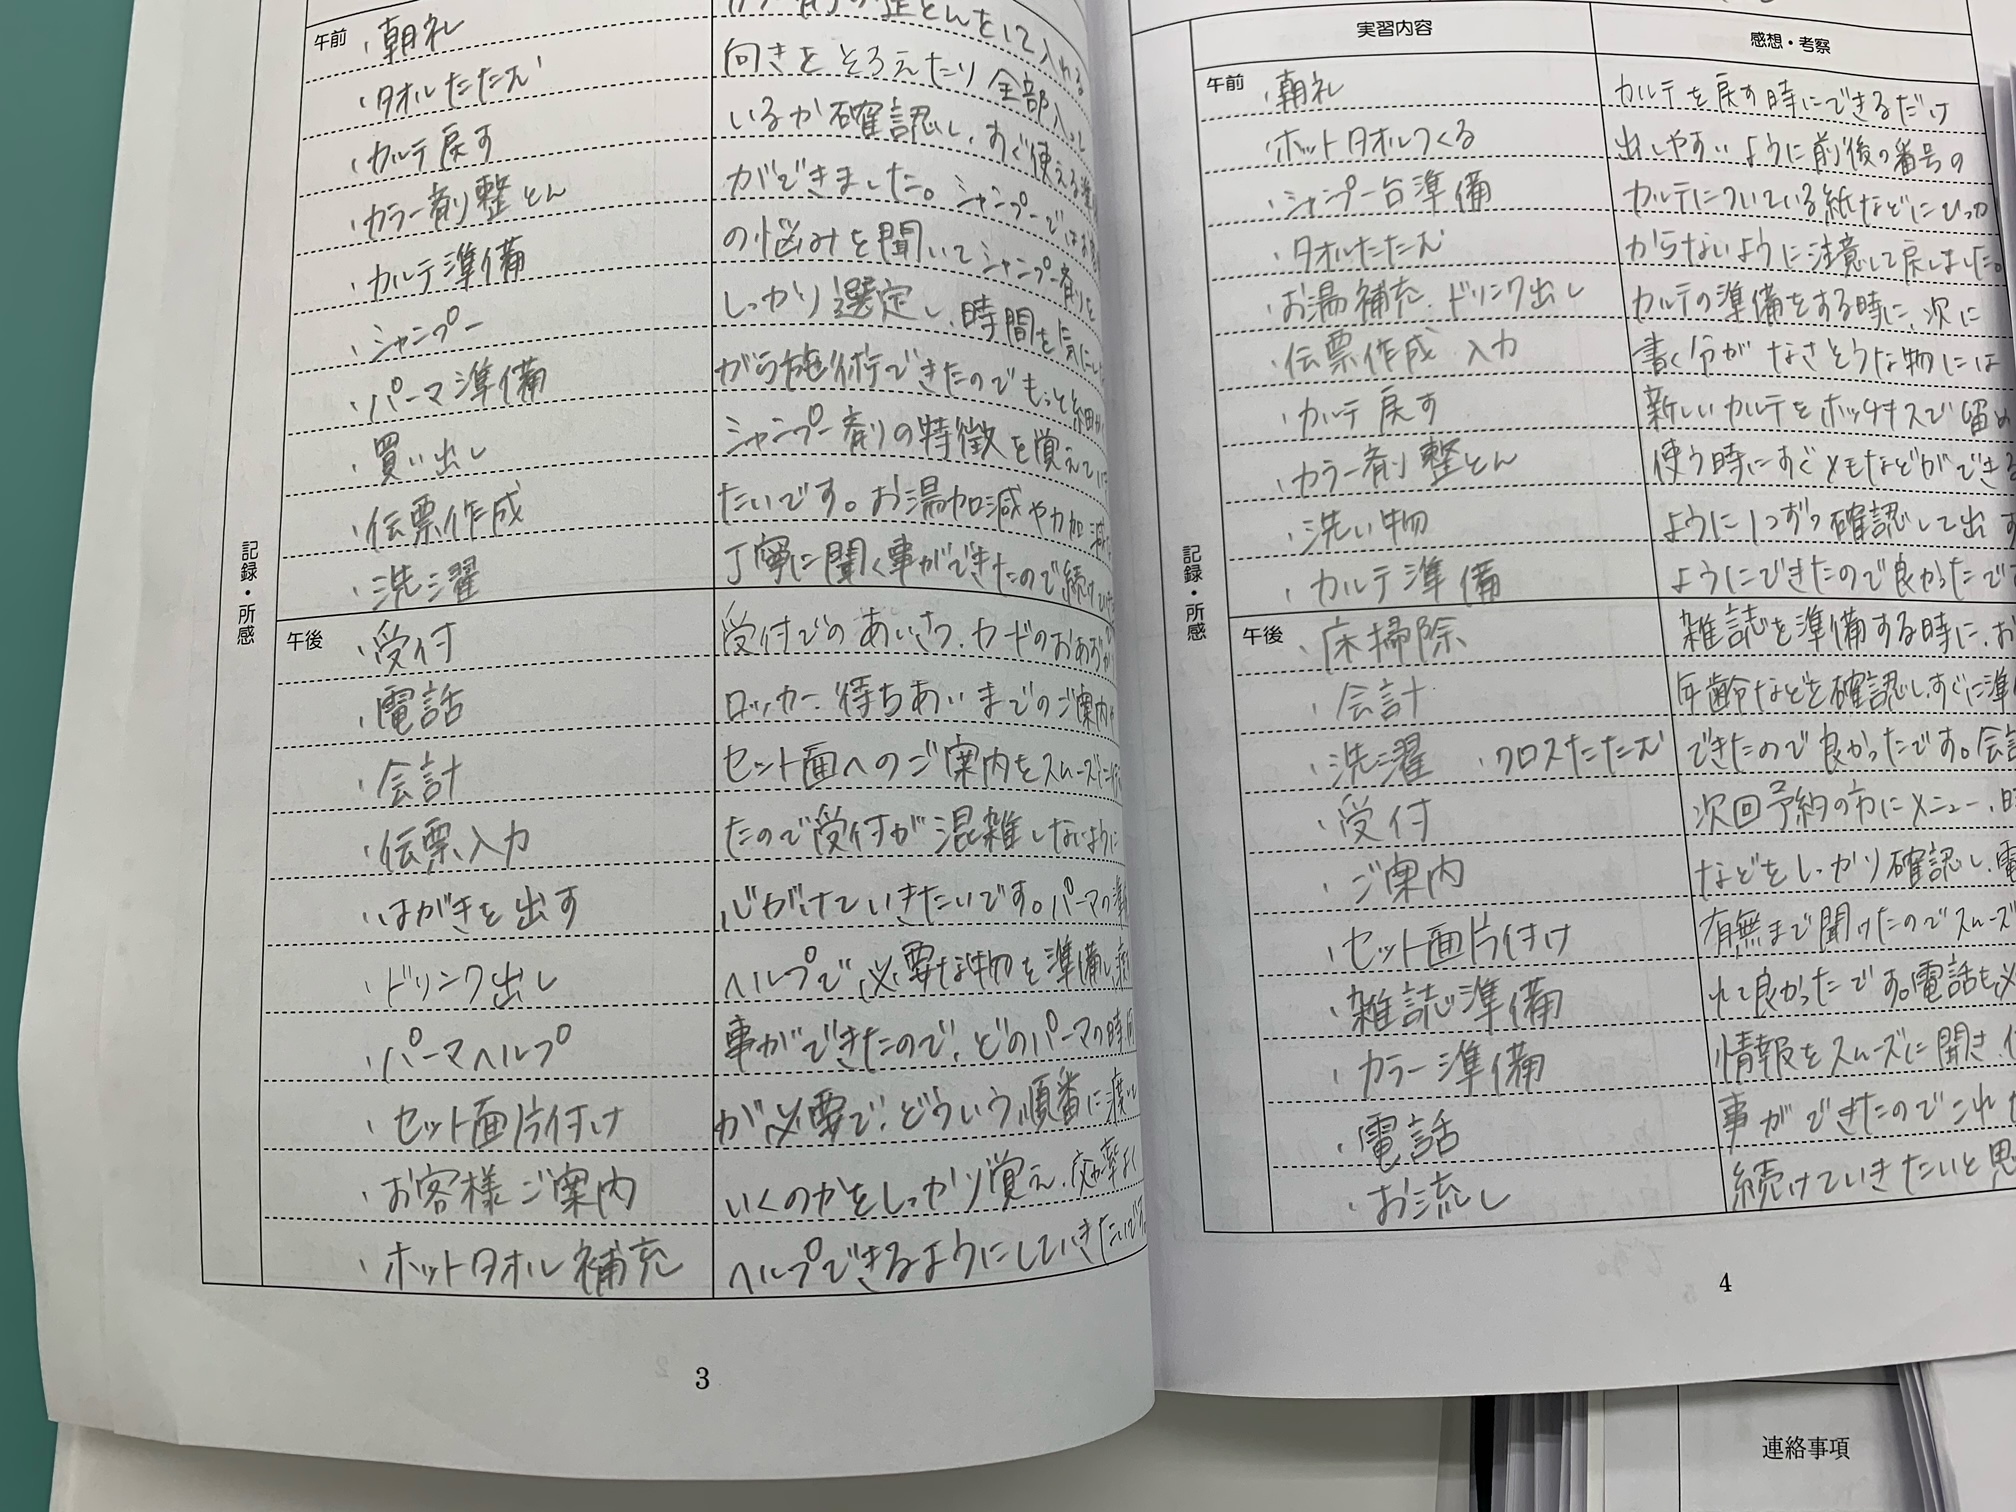 午前
・朝礼
・タオルたたむ
・カルテ戻す
・カラー剤整とん
・カルテ準備
・シャンプー
・パーマ準備
・買い出し
・伝票作成
・洗濯
カラー剤の整とんをして入れる
向きをそろえたり全部入って
いるか確認し、すぐ使える準
ができました。シャンプーではお客
の悩みを聞いてシャンプー剤を
しっかり選定し、時間を気にし
がら施術できたのでもっと細か
シャンプー剤の特徴を覚えていき
たいです。お湯加減や力加減
丁寧に聞く事ができたので続けて
記録・所感
午後
・受付
・電話
・会計
・伝票入力
・はがきを出す
・ドリンク出し
・パーマヘルプ
・セット面片付け
・お客様ご案内
・ホットタオル補充
受付でのあいさつ、カードのおあずか
ロッカー、待ちあいまでのご案内や
セット面へのご案内をスムーズに
たので受付が混雑しないように
心がけていきたいです。パーマの準
ヘルプで必要な物を準備し
事ができたので、どのパーマの時何
が必要で、どういう順番に渡して
いくのかをしっかり覚え、効率よく
ヘルプできるようにしていきたいです
3
実習内容
感想・考察
午前
・朝礼
・ホットタオルつくる
・シャンプー台準備
・タオルたたむ
・お湯補充、ドリンク出し
・伝票作成 入力
・カルテ戻す
・カラー剤整とん
・洗い物
・カルテ準備
カルテを戻す時にできるだけ
出しやすいように前後の番号の
カルテについている紙などにひっか
からないように注意して戻しました。
カルテの準備をする時に、次に
書く分がなさそうな物には
新しいカルテをホッチキスで留め
使う時にすぐメモなどができる
ように1つずつ確認して出す
ようにできたので良かったです
記録・所感
午後
・床掃除
・会計
・洗濯 ・クロスたたむ
・受付
・ご案内
・セット面片付け
・雑誌準備
・カラー準備
・電話
・お流し
雑誌を準備する時に、お
年齢などを確認し、すぐに準
できたので良かったです。会計
次回予約の方にメニュー、時
などをしっかり確認し、電
有無まで聞けたのでスムーズ
れて良かったです。電話も必
情報をスムーズに聞き、
事ができたのでこれか
続けていきたいと思
4
連絡事項